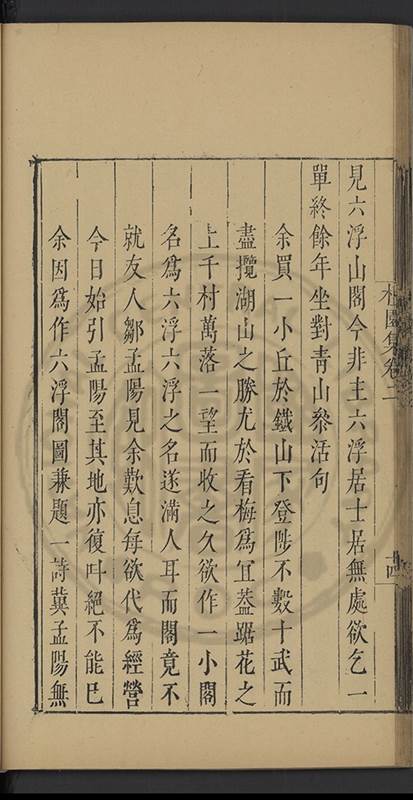 見六浮山閣今非主六浮居士居無處欲乞一
單終餘年坐對青山叅活句
余買一小丘於鐵山下登陟不數十武而
盡攬湖山之勝尤於看梅爲宜葢踞花之
上千村萬落一望而收之久欲作一小閣
名爲六浮六浮之名遂滿人耳而閣竟不
就友人鄒孟陽見余歎息每欲代爲經營
今日始引孟陽至其地亦復叫絕不能已
余因爲作六浮閣圖兼題一詩冀孟陽無
集卷二
十四